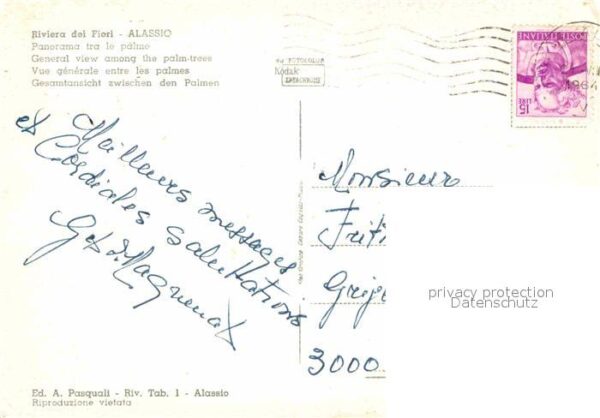 Riviera dei Fiori - ALASSIO
Panorama tra le palme
General view among the palm-trees
Vue générale entre les palmes
Gesamtansicht zwischen den Palmen
FOTOCOLOR
Kodak
EKTACHROME
POSTE ITALIANE
15 LIRE
1964
Meilleurs messages
et Cordiales salutations
Monsieur
3000
privacy protection
Datenschutz
Ed. A. Pasquali - Riv. Tab. 1 - Alassio
Riproduzione vietata